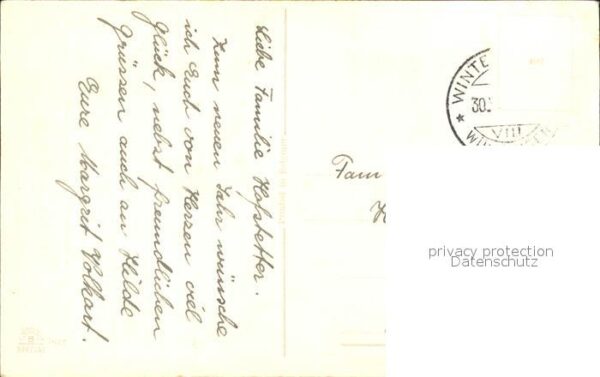 Liebe Familie Hofstetter.
Zum neuen Jahr wünsche
ich Euch von Herzen viel
Glück, nebst freundlichen
Grüssen auch an Hilde
Eure Margrit Volkart.
* WINTE
30.
VIII
Fam
H
privacy protection
Datenschutz